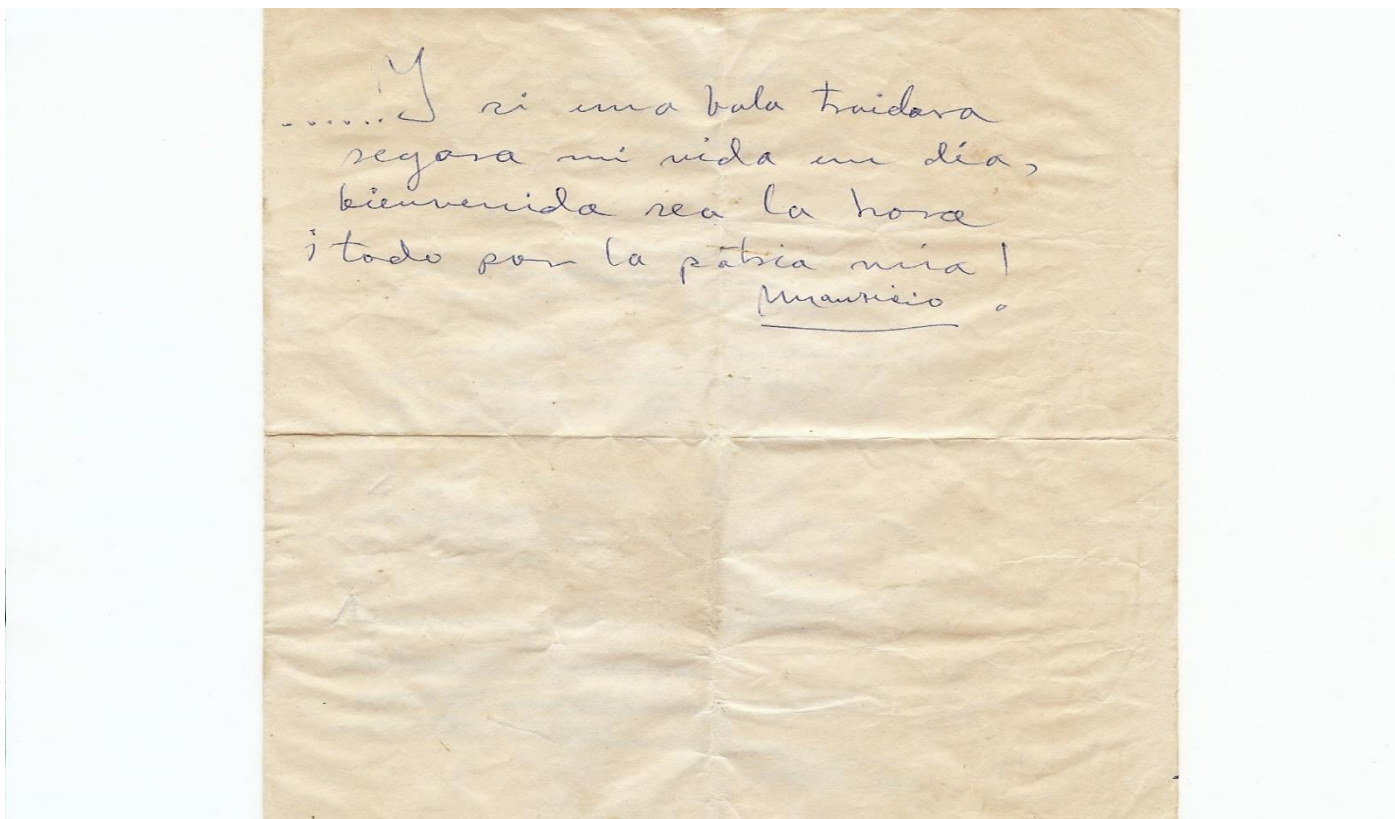 ......¡Y si una bala traidora
segara mi vida un día,
bienvenida sea la hora
¡todo por la pátria mía!
Mauricio.